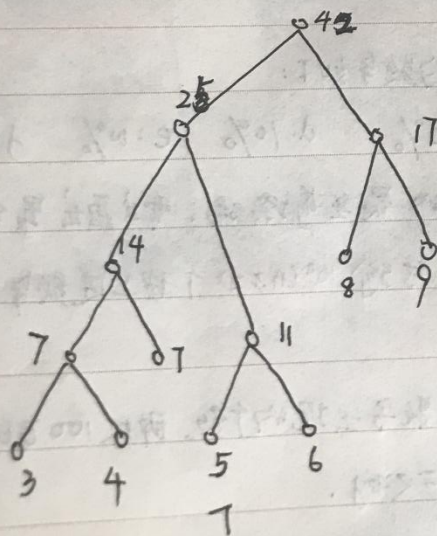 42
25
17
14
8
9
7
7
11
3
4
5
6
7